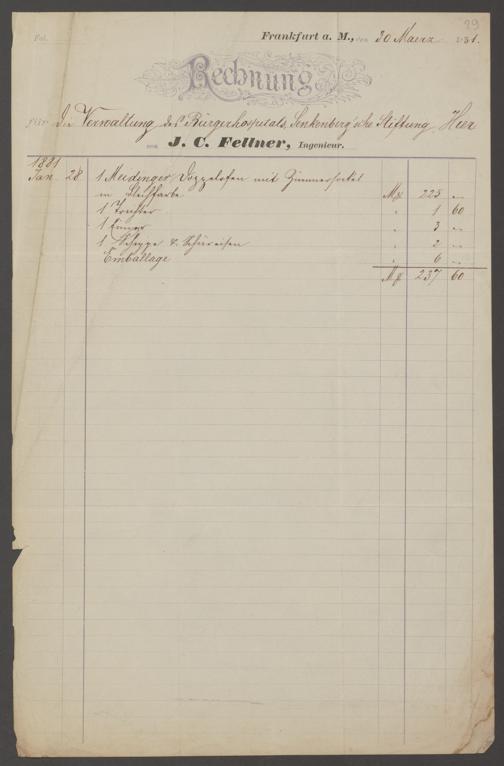 Fol. 29
Frankfurt a. M., den 30 Maerz 1881.
Rechnung
für Die Verwaltung des Bürgerhospitals, Senkenberg'sche Stiftung, Hier
von J. C. Fellner, Ingenieur.
1881
Jan. 28. 1 Meidinger Doppelofen mit Zimmersockel
in Bleifarbe Mk 225 --
1 Trichter " 1 60
1 Eimer " 3 --
1 Schippe & Schüreisen " 2 --
Emballage " 6 --
Mk 237 60